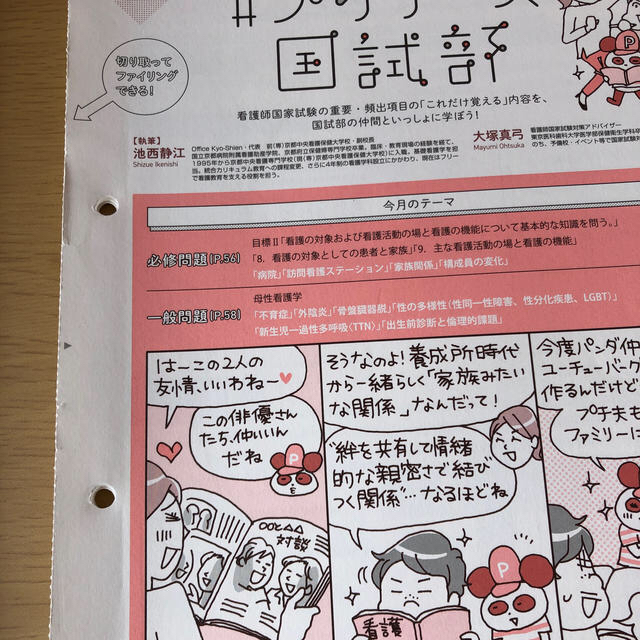 国試部
切り取って
ファイリング
できる!
看護師国家試験の重要・頻出項目の「これだけ覚える」内容を、
国試部の仲間といっしょに学ぼう!
【執筆】
池西静江
Shizue Ikenishi
Office Kyo-Shien・代表 前(専)京都中央看護保健大学校・副校長
国立京都病院附属看護助産学院、京都府立保健婦専門学校卒業。臨床・教育現場の経験を経て、
1995年から京都中央看護専門学校(現(専)京都中央看護保健大学校)に入職。基礎看護学を担
当。統合カリキュラム教育への課程変更、さらに4年制の看護学科設立にかかわり、現在はフリー
で看護教育を支える役割を担う。
大塚真弓
Mayumi Ohtsuka
看護師国家試験対策アドバイザー
東京医科歯科大学医学部保健衛生学科卒
のち、予備校・イベント等で国家試験対
今月のテーマ
必修問題(P.56)
目標Ⅱ「看護の対象および看護活動の場と看護の機能について基本的な知識を問う。」
「8. 看護の対象としての患者と家族」「9. 主な看護活動の場と看護の機能」
「病院」「訪問看護ステーション」「家族関係」「構成員の変化」
一般問題(P.58)
母性看護学
「不育症」「外陰炎」「骨盤臓器脱」「性の多様性(性同一性障害、性分化疾患、LGBT)」
「新生児一過性多呼吸〈TTN〉」「出生前診断と倫理的課題」
は〜この2人の
友情、いいわね〜
この俳優さん
たち、仲いいん
だね
P
○○と△△
対談
そうなのよ!養成所時代
から一緒らしく「家族みたい
な関係」なんだって!
"絆を共有して情緒
的な親密さで結び
つく関係"…なるほどね
P
看護
今度パンダ仲
ユーチューバーク
作るんだけど
プチ夫も
ファミリーに